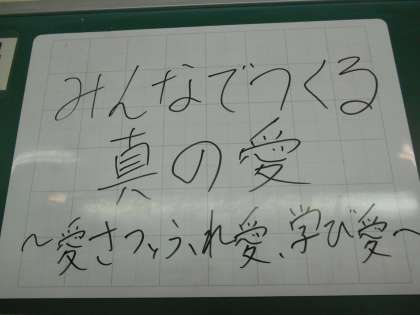 みんなでつくる
真の愛
～愛さつ、ふれ愛、学び愛～